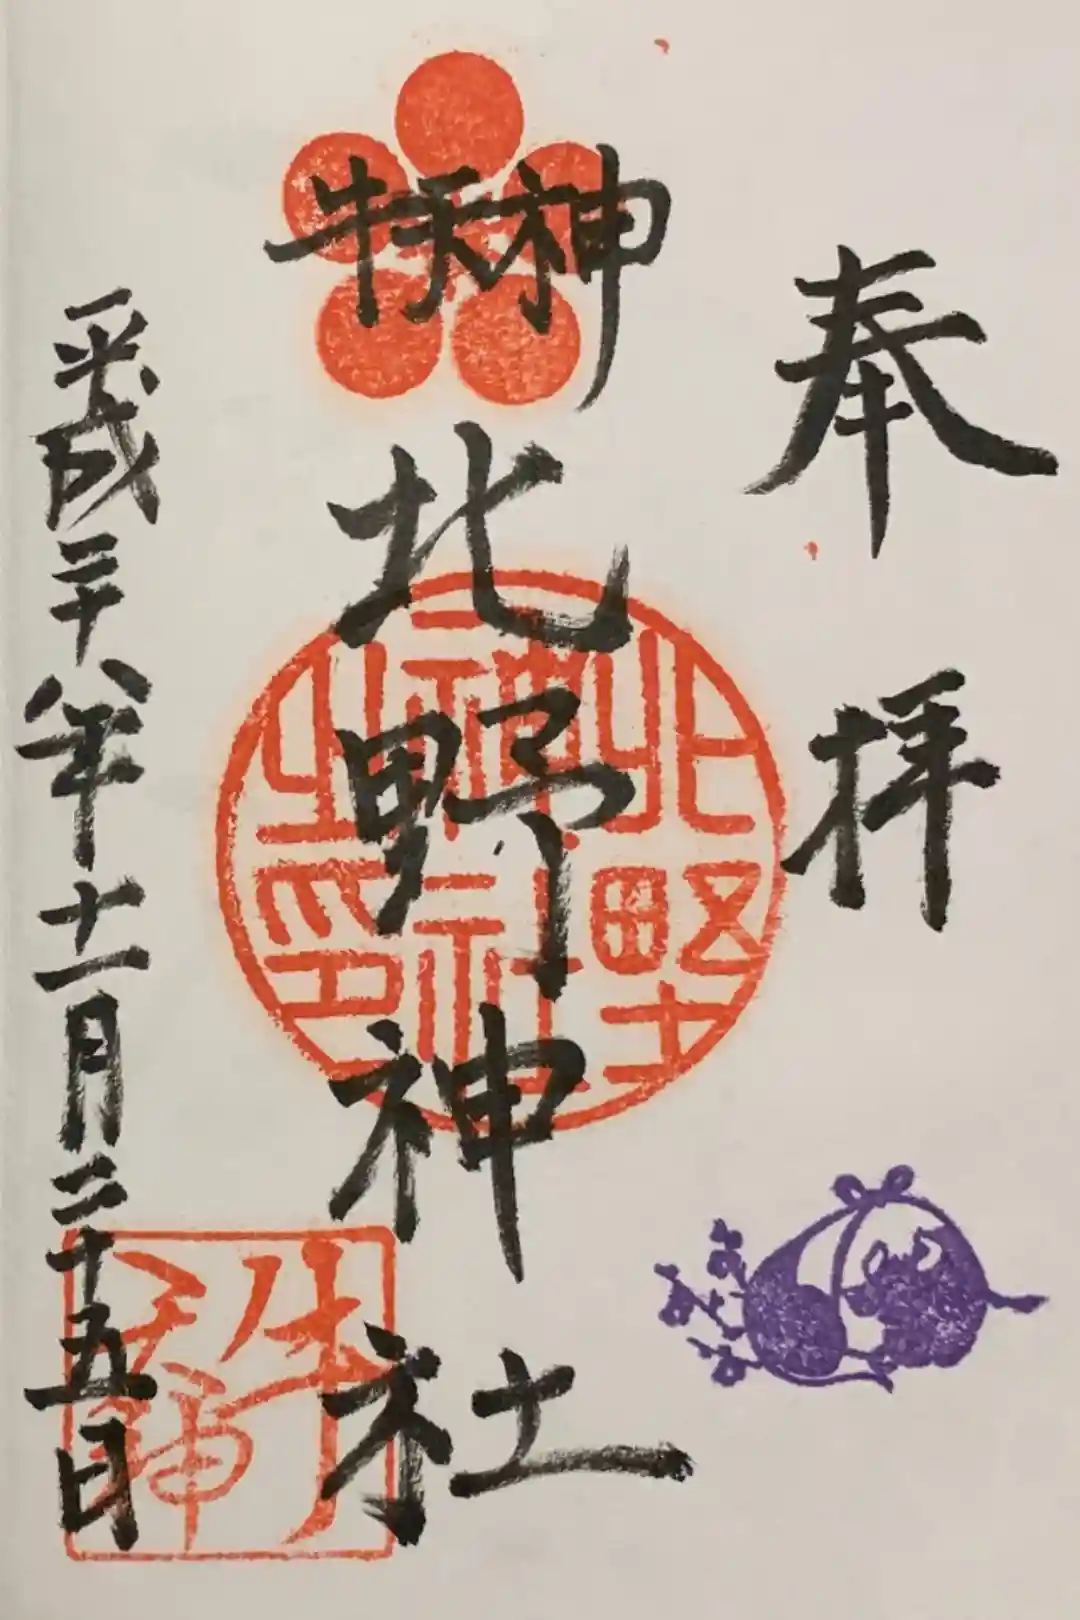 奉拝
牛天神
北野神社
平成二十八年十一月二十五日
北野神社之印
牛天神